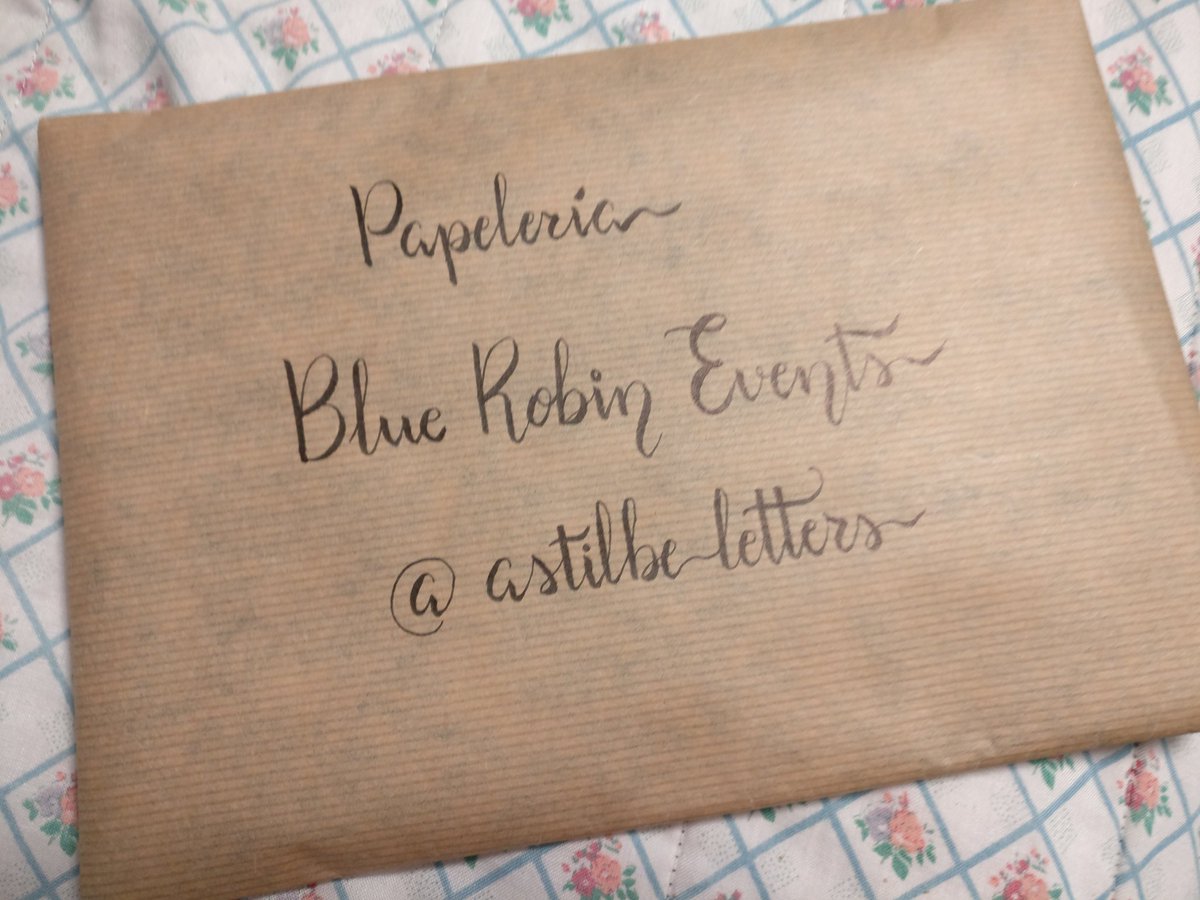 Papeleria
Blue Robin Events
@astilbe letters